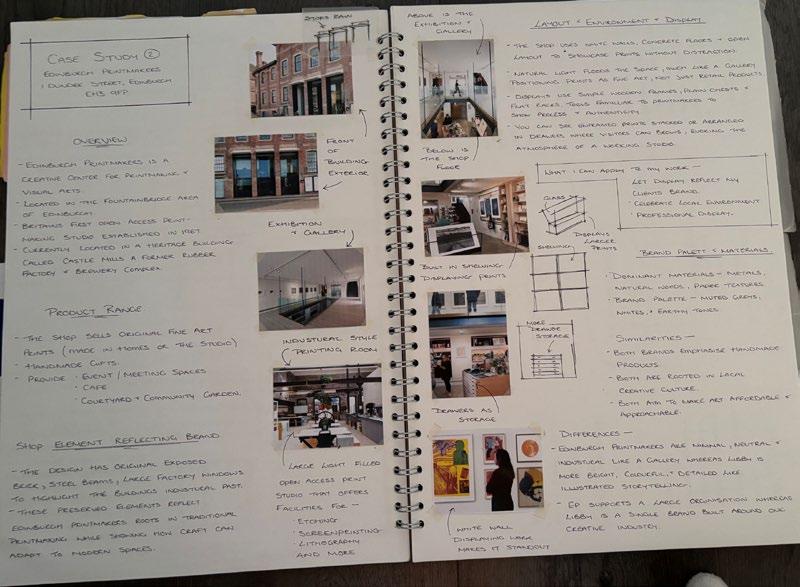 CASE STUDY ②
EDINBURGH PRINTMAKERS
1 DUNDEE STREET, EDINBURGH
EH3 9FP
OVERVIEW
- EDINBURGH PRINTMAKERS IS A
CREATIVE CENTER FOR PRINTMAKING +
VISUAL ARTS.
- LOCATED IN THE FOUNTAINBRIDGE AREA
OF EDINBURGH.
- BRITAINS FIRST OPEN ACCESS PRINT-
MAKING STUDIO ESTABLISHED IN 1967.
- CURRENTLY LOCATED IN A HERITAGE BUILDING
CALLED CASTLE MILLS A FORMER RUBBER
FACTORY + BREWERY COMPLEX.
PRODUCT RANGE
- THE SHOP SELLS ORIGINAL FINE ART
PRINTS (MADE IN HOMES OR THE STUDIO)
- HANDMADE GIFTS.
- PROVIDE · EVENT / MEETING SPACES
· CAFE
· COURTYARD + COMMUNITY GARDEN.
SHOP ELEMENT REFLECTING BRAND
- THE DESIGN HAS ORIGINAL EXPOSED
BRICK, STEEL BEAMS, LARGE FACTORY WINDOWS
TO HIGHLIGHT THE BUILDINGS INDUSTRIAL PAST.
- THESE PRESERVED ELEMENTS REFLECT
EDINBURGH PRINTMAKERS ROOTS IN TRADITIONAL
PRINTMAKING WHILE SHOWING HOW CRAFT CAN
ADAPT TO MODERN SPACES.
STOPS RAIN
FRONT
OF
BUILDING
EXTERIOR
EXHIBITION
+ GALLERY
INDUSTURAL STYLE
PRINTING ROOM
LARGE LIGHT FILLED
OPEN ACCESS PRINT
STUDIO THAT OFFERS
FACILITIES FOR -
· ETCHING
· SCREENPRINTING
· LITHOGRAPHY
AND MORE
ABOVE IS THE
EXHIBITION +
GALLERY
BELOW IS
THE SHOP
FLOOR
BUILT IN SHELVING
DISPLAYING PRINTS
DRAWERS AS
STORAGE
WHITE WALL
DISPLAYING WORK
MAKES IT STANDOUT
LAYOUT + ENVIRONMENT + DISPLAY
- THE SHOP USES WHITE WALLS, CONCRETE FLOORS + OPEN
LAYOUT TO SHOWCASE PRINTS WITHOUT DISTRACTION.
- NATURAL LIGHT FLOODS THE SPACE, MUCH LIKE A GALLERY
POSITIONING PRINTS AS FINE ART, NOT JUST RETAIL PRODUCTS.
- DISPLAYS USE SIMPLE WOODEN FRAMES, PLAN CHESTS +
FLAT RACKS, TOOLS FAMILIAR TO PRINTMAKERS TO
SHOW PROCESS + AUTHENTICITY.
- YOU CAN SEE UNFRAMED PRINTS STACKED OR ARRANGED
IN DRAWERS WHERE VISITORS CAN BROWSE, EVOKING THE
ATMOSPHERE OF A WORKING STUDIO.
WHAT I CAN APPLY TO MY WORK -
· LET DISPLAY REFLECT MY
CLIENTS BRAND.
· CELEBRATE LOCAL ENVIRONMENT
· PROFESSIONAL DISPLAY.
GLASS
DISPLAYS
LARGER
PRINTS
SHELVING
MORE
DRAWER
STORAGE
BRAND PALETT + MATERIALS
- DOMINANT MATERIALS - METALS,
NATURAL WOODS, PAPER TEXTURES
- BRAND PALETTE - MUTED GREYS,
WHITES, + EARTHY TONES
SIMILARITIES -
· BOTH BRANDS EMPHASISE HANDMADE
PRODUCTS.
· BOTH ARE ROOTED IN LOCAL
CREATIVE CULTURE.
· BOTH AIM TO MAKE ART AFFORDABLE +
APPROACHABLE.
DIFFERENCES -
- EDINBURGH PRINTMAKERS ARE MINIMAL, NEUTRAL +
INDUSTRIAL LIKE A GALLERY WHEREAS LIBBY IS
MORE BRIGHT, COLOURFUL + DETAILED LIKE
ILLUSTRATED STORYTELLING.
- EP SUPPORTS A LARGE ORGINISATION WHEREAS
LIBBY IS A SINGLE BRAND BUILT AROUND ONE
CREATIVE INDUSTRY.